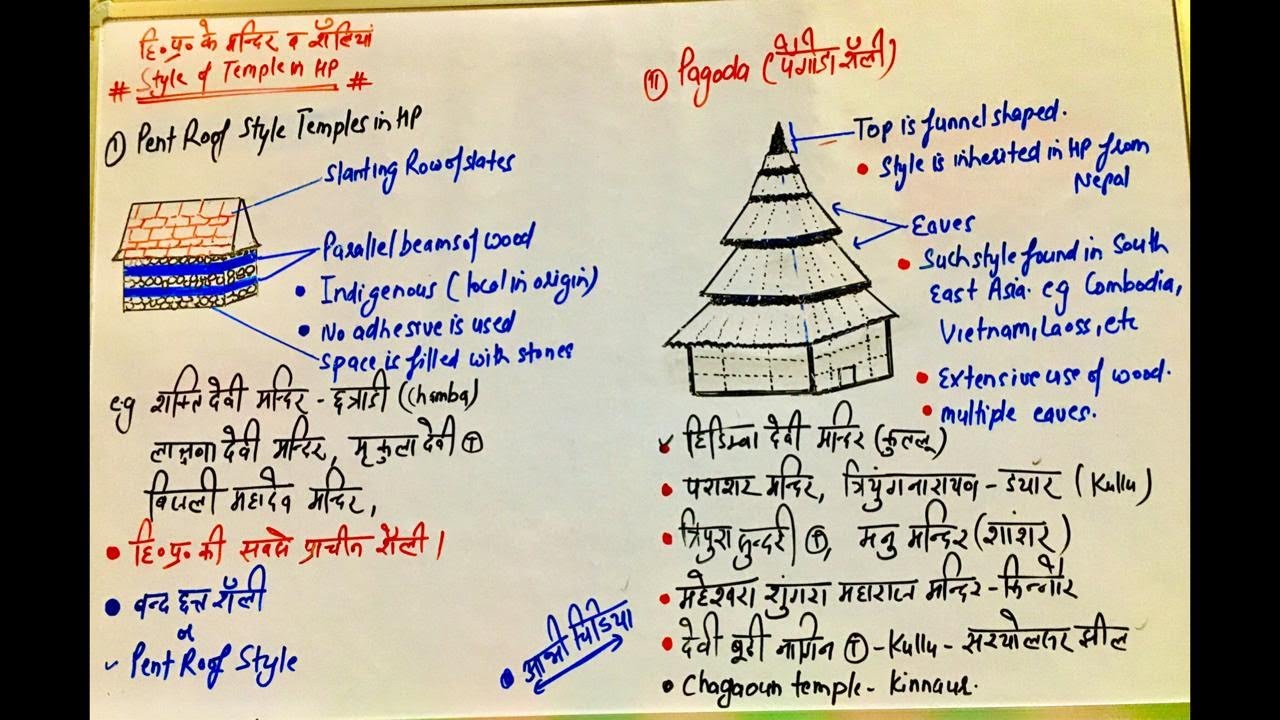 हि॰प्र॰ के मन्दिर व शैलियां
# Style of Temple in HP #
① Pent Roof Style Temples in HP
Slanting Row of slates
Parallel beams of wood
• Indigenous (local in origin)
• No adhesive is used
Space is filled with stones
e.g शक्ति देवी मन्दिर - छत्राडी (Chamba)
लाक्षणा देवी मन्दिर, मृकुला देवी Ⓣ
बिजली महादेव मन्दिर,
• हि॰प्र॰ की सबसे प्राचीन शैली।
• बन्द छत्त शैली
or
Pent Roof Style
⑪ Pagoda (पैगोडा शैली)
Top is funnel shaped.
• Style is inherited in HP from
Nepal
Eaves
• Such style found in South
East Asia. eg Combodia,
Vietnam, Laoss, etc
• Extensive use of wood.
• multiple eaves.
हिडिम्बा देवी मन्दिर (कुल्लू)
• पराशर मन्दिर, त्रियुगनारायण - ड्यार (Kullu)
• त्रिपुरा सुन्दरी Ⓣ, मनु मन्दिर (शांशर)
• महेश्वरा शुंगरा महाराज मन्दिर - किन्नौर
• देवी बूढी नागिन Ⓣ - Kullu - सरयोलसर झील
• Chagaoun temple - Kinnaur.